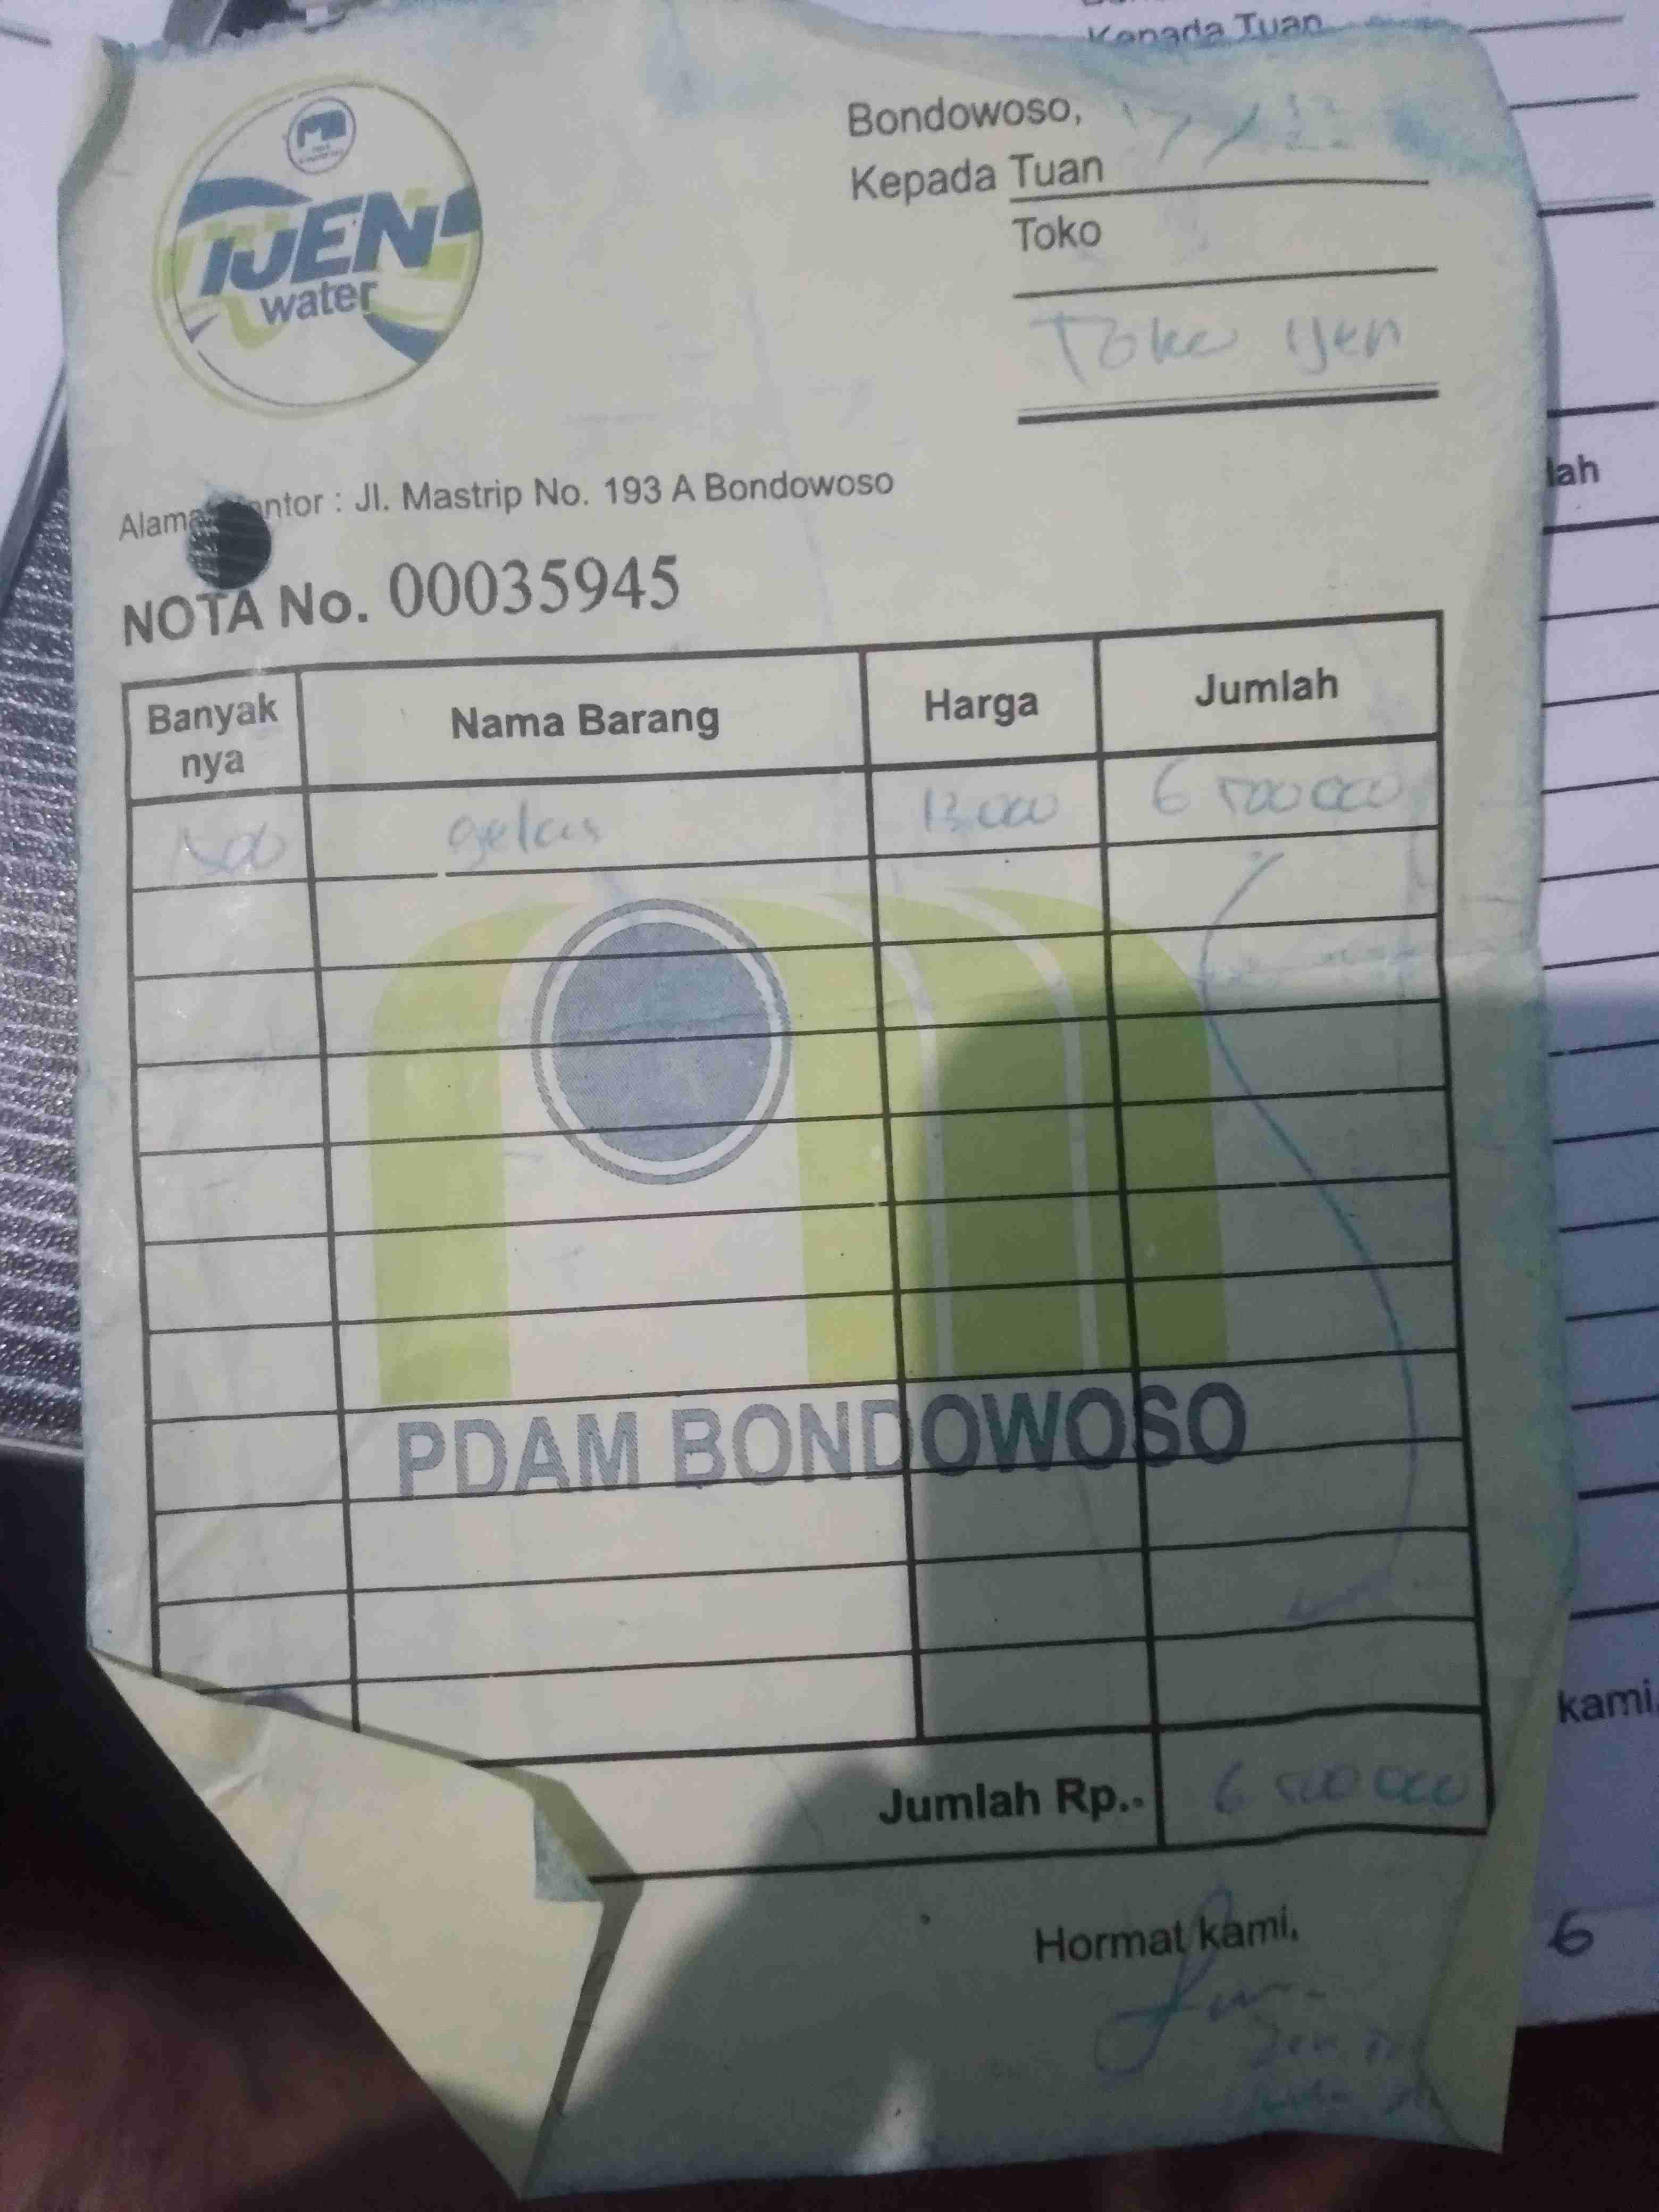 Kepada Tuan
IJEN
water
Bondowoso,
Kepada Tuan
Toko
Toko Ijen
Alamat Kantor : Jl. Mastrip No. 193 A Bondowoso
NOTA No. 00035945
Banyak nya Nama Barang Harga Jumlah
gelas 13.000 6 500 000
PDAM BONDOWOSO
Jumlah Rp.. 6 500 000
Hormat kami,
lah
kami,
6